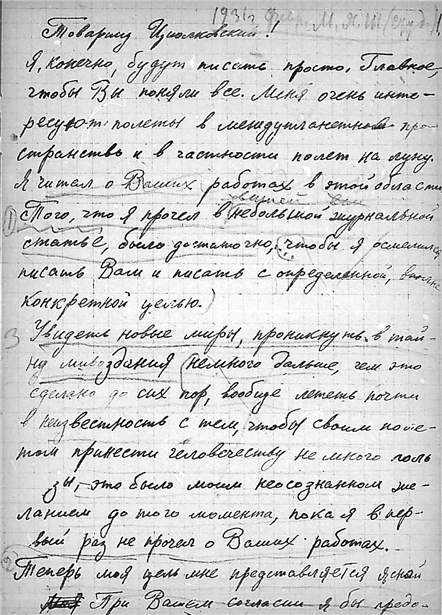 1931 г. Февр. М. Я. Ш (студ.)
Товарищ Циолковский!
Я, конечно, буду писать просто. Главное,
чтобы Вы поняли все. Меня очень инте-
ресуют полеты в междупланетном про
странстве и в частности полет на луну.
Я читал о Ваших работах в этой области
(1) Того, что я прочел в небольшой журнальной
статье, было достаточно, чтобы я осмелился
писать Вам и писать с определенной, вполне
конкретной целью.)
3 Увидеть новые миры, проникнуть в тай-
ну мироздания (немного дальше, чем это
сделано до сих пор, вообще лететь почти
в неизвестность с тем, чтобы своим поле-
том принести человечеству немного поль
зы, - это было моим неосознанном же-
ланием до того момента, пока я в пер-
вый раз не прочел о Ваших работах.
(2) Теперь моя цель мне представляется ясной
При Вашем согласии я бы предо-